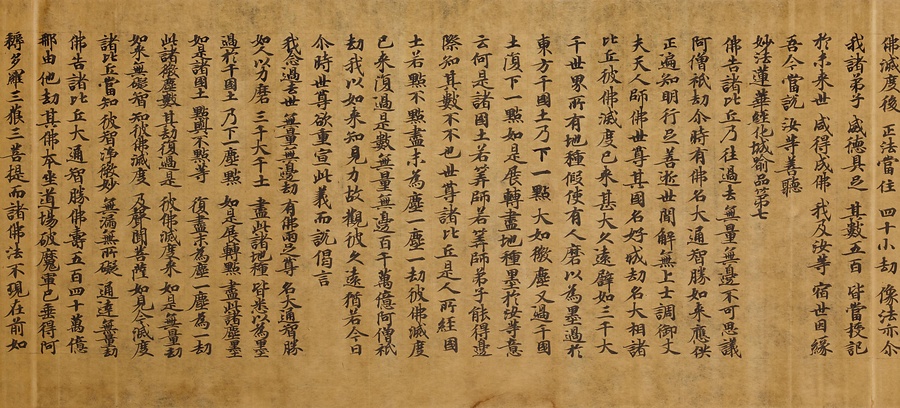 佛滅度後 正法當住 四十小劫 像法亦尒
我諸弟子 威德具足 其數五百 皆當授記
於未來世 咸得成佛 我及汝等 宿世因緣
吾今當說 汝等善聽
妙法蓮華經化城喻品第七
佛告諸比丘乃往過去無量無邊不可思議
阿僧祇劫尒時有佛名大通智勝如來應供
正遍知明行足善逝世間解無上士調御丈
夫天人師佛世尊其國名好城劫名大相諸
比丘彼佛滅度已來甚大久遠譬如三千大
千世界所有地種假使有人磨以為墨過於
東方千國土乃下一點大如微塵又過千國
土復下一點如是展轉盡地種墨於汝等意
云何是諸國土若筭師若筭師弟子能得邊
際知其數不不也世尊諸比丘是人所經國
土若點不點盡末為塵一塵一劫彼佛滅度
已來復過是數無量無邊百千萬億阿僧祇
劫我以如來知見力故觀彼久遠猶若今日
尒時世尊欲重宣此義而說偈言
我念過去世 無量無邊劫 有佛兩足尊 名大通智勝
如人以力磨 三千大千土 盡此諸地種 皆悉以為墨
過於千國土 乃下一塵點 如是展轉點 盡此諸塵墨
如是諸國土 點與不點等 復盡末為塵 一塵為一劫
此諸微塵數 其劫復過是 彼佛滅度來 如是無量劫
如來無礙智 知彼佛滅度 及聲聞菩薩 如見今滅度
諸比丘當知 彼智淨微妙 無漏無所礙 通達無量劫
佛告諸比丘大通智勝佛壽五百四十萬億
那由他劫其佛本坐道場破魔軍已垂得阿
耨多羅三藐三菩提而諸佛法不現在前如